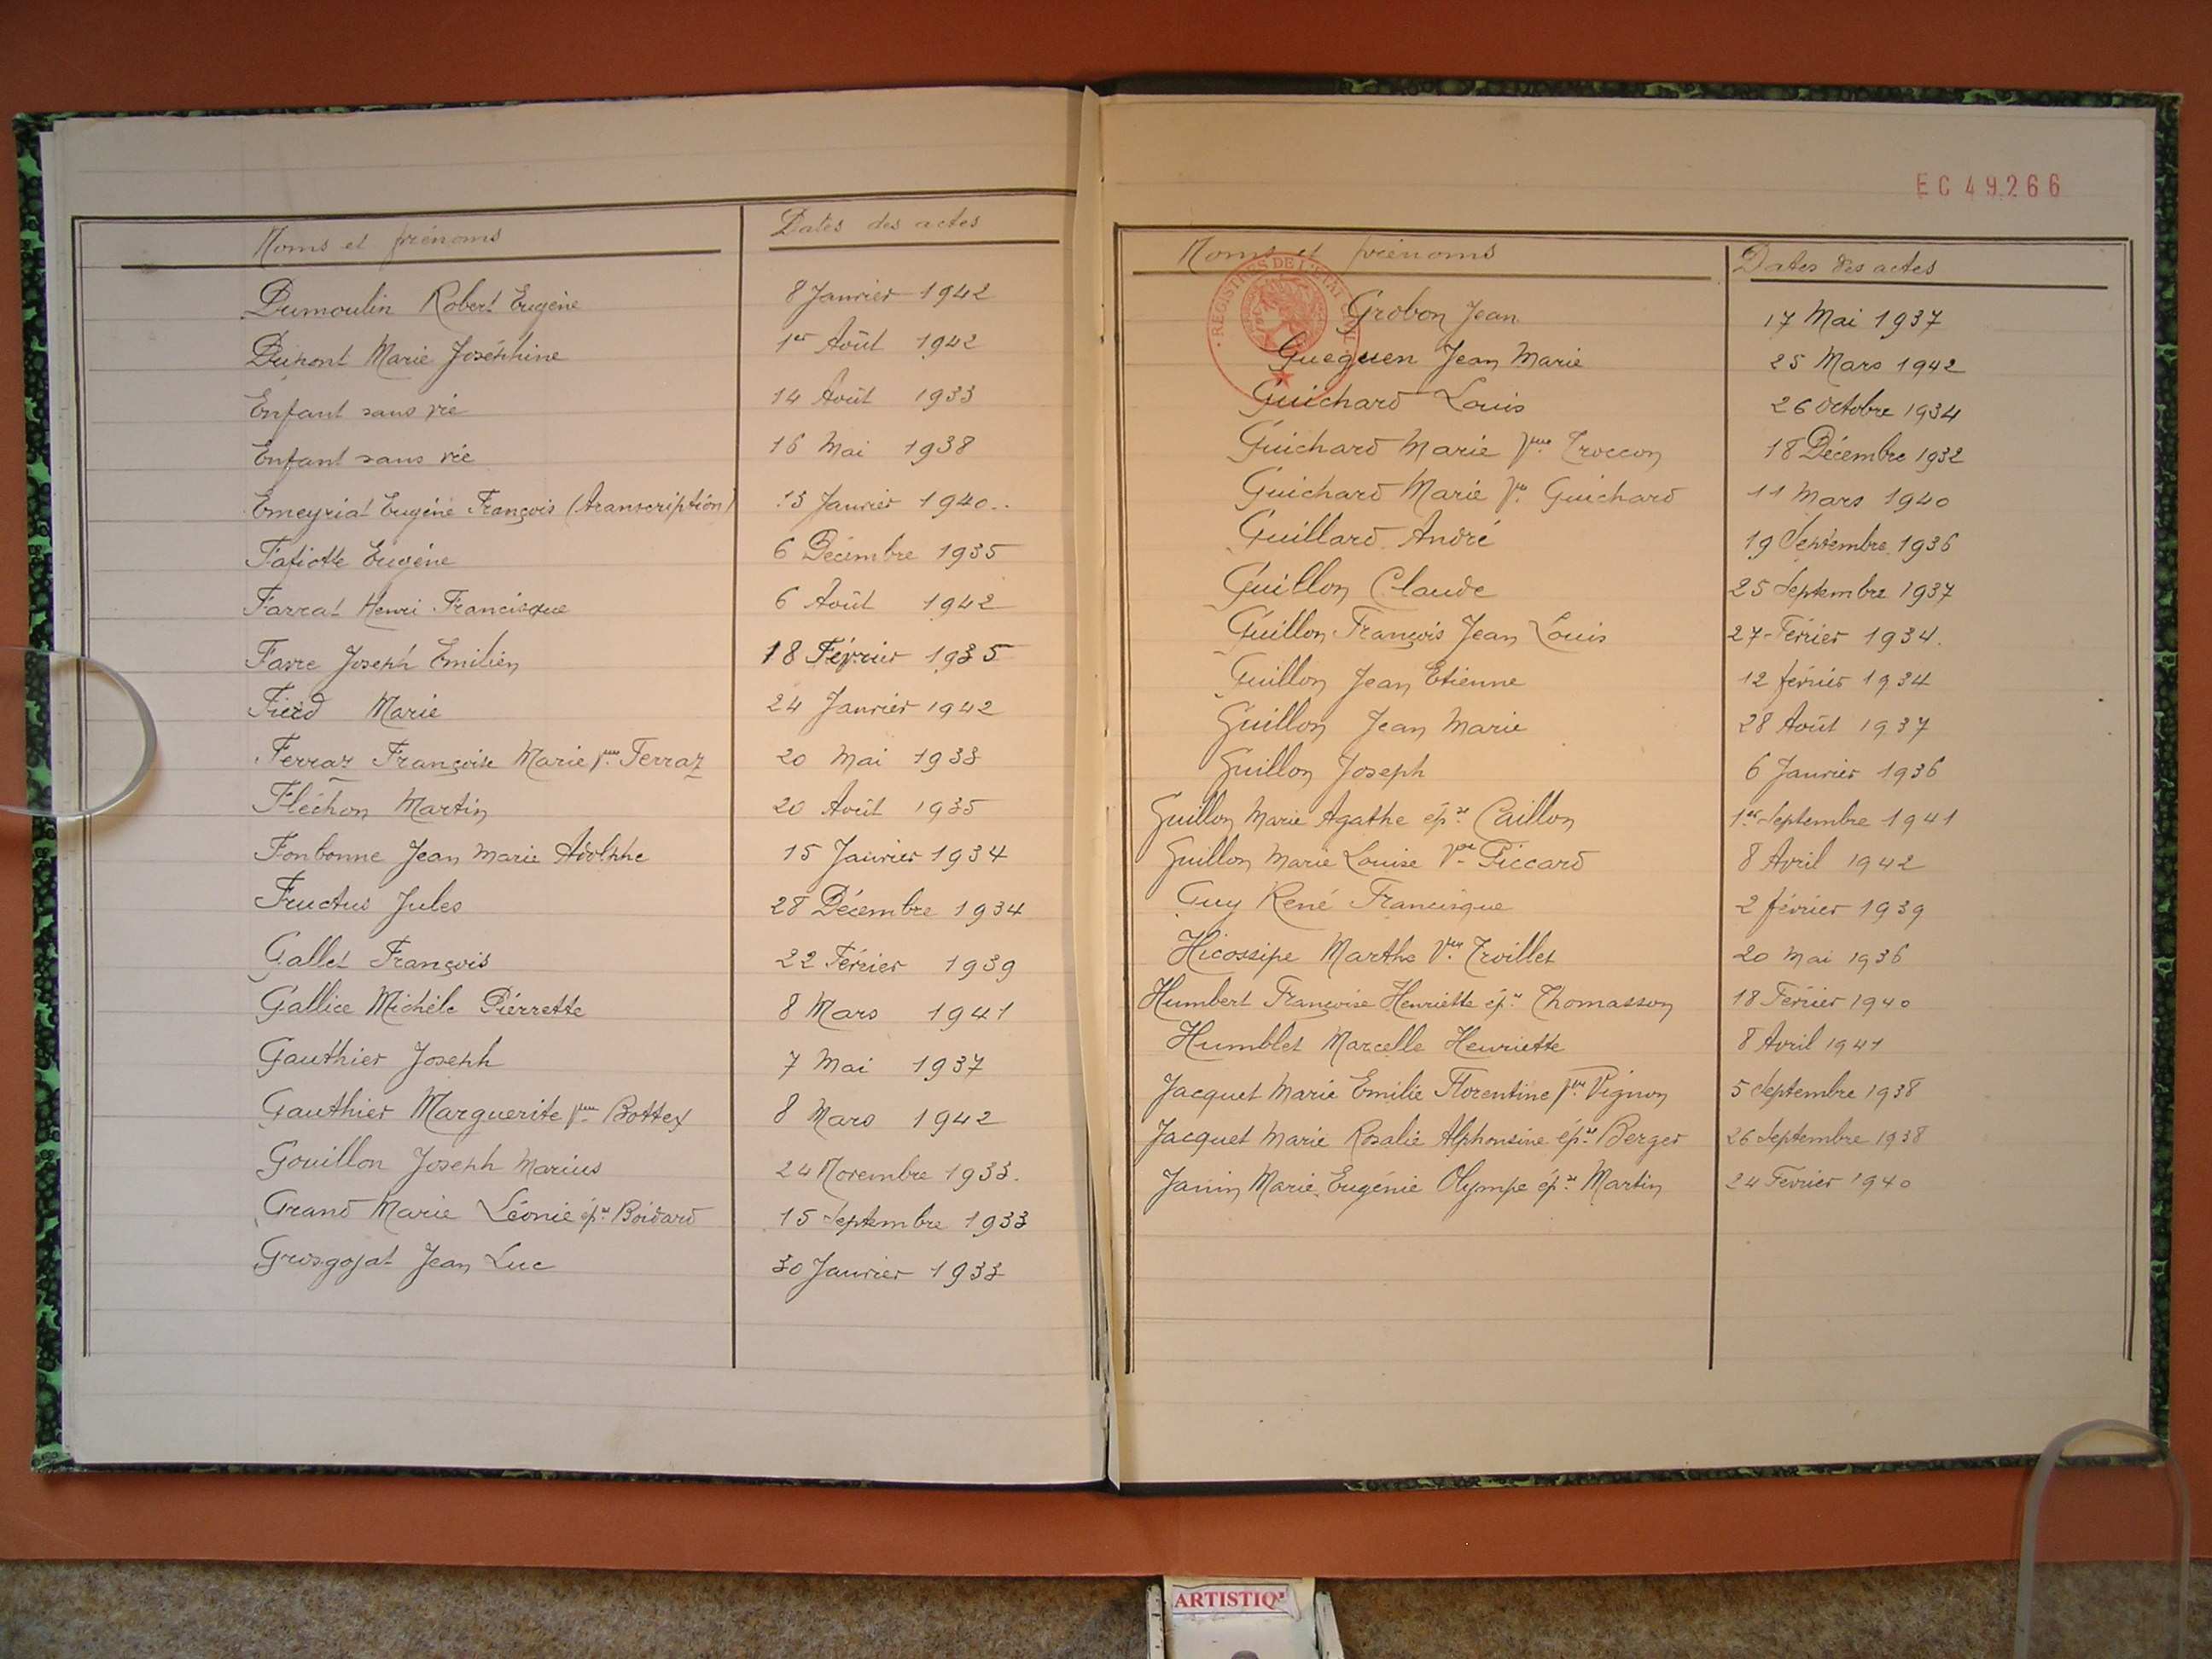 Noms et prénoms Dates des actes
Dumoulin Robert Eugène 8 Janvier 1942
Dupont Marie Joséphine 1er Août 1942
Enfant sans vie 14 Août 1933
Enfant sans vie 16 Mai 1938
Emeyriat Eugène François (transcription) 13 Janvier 1940
Fafiotte Eugène 6 Décembre 1935
Farrat Henri Francisque 6 Août 1942
Favre Joseph Emilien 18 Février 1935
Fierd Marie 24 Janvier 1942
Ferraz Françoise Marie Vve Ferraz 20 Mai 1933
Fléchon Martin 20 Août 1935
Fonbonne Jean Marie Adolphe 15 Janvier 1934
Fructus Jules 28 Décembre 1934
Gallet François 22 Février 1939
Gallice Michèle Pierrette 8 Mars 1941
Gauthier Joseph 7 Mai 1937
Gauthier Marguerite Vve Bottex 8 Mars 1942
Gouillon Joseph Marius 24 Novembre 1933.
Grand Marie Léonie épse Boidard 15 Septembre 1933
Grosgojat Jean Luc 30 Janvier 1933
EC 49266
REGISTRES DE L'ETAT CIVIL
Noms et prénoms Dates des actes
Grobon Jean 17 Mai 1937
Gueguen Jean Marie 25 Mars 1942
Guichard Louis 26 Octobre 1934
Guichard Marie Vve Troccon 18 Décembre 1932
Guichard Marie Vve Guichard 11 Mars 1940
Guillard André 19 Septembre 1936
Guillon Claude 25 Septembre 1937
Guillon François Jean Louis 27 Février 1934.
Guillon Jean Etienne 12 février 1934
Guillon Jean Marie 28 Août 1937
Guillon Joseph 6 Janvier 1936
Guillon Marie Agathe épse Caillon 1er Septembre 1941
Guillon Marie Louise Vve Piccard 8 Avril 1942
Guy René Francisque 2 février 1939
Hicossipe Marthe Vve Troillet 20 Mai 1936
Humbert Françoise Henriette épse Thomasson 18 Février 1940
Humblet Marcelle Henriette 8 Avril 1941
Jacquet Marie Emilie Florentine Vve Vignon 5 Septembre 1938
Jacquet Marie Rosalie Alphonsine épse Berger 26 Septembre 1938
Janin Marie Eugénie Olympe épse Martin 24 Février 1940
ARTISTIQ